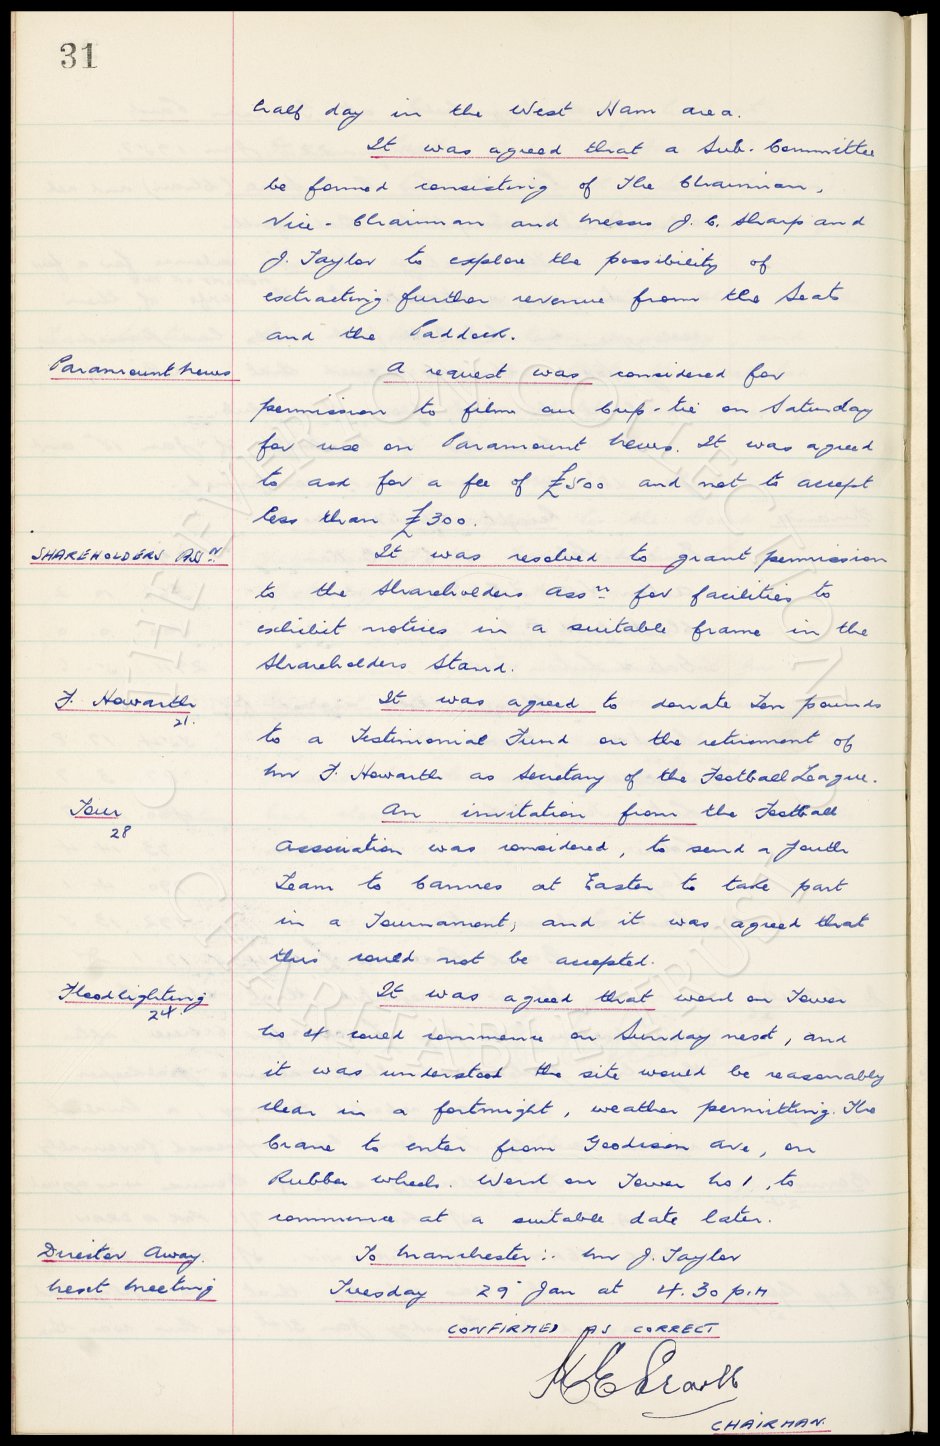 31
half day in the West Ham area.
It was agreed that a Sub-Committee
be formed consisting of The Chairman,
Vice-Chairman and Messrs J. C. Sharp and
J. Taylor to explore the possibility of
extracting further revenue from the Seats
and the Paddock.
Paramount News
A request was considered for
permission to film our Cup-tie on Saturday
for use on Paramount News. It was agreed
to ask for a fee of £500 and not to accept
less than £300.
SHAREHOLDERS ASSN.
It was resolved to grant permission
to the Shareholders Assn for facilities to
exhibit notices in a suitable frame in the
Shareholders Stand.
F. Howarth
21.
It was agreed to donate Ten pounds
to a Testimonial Fund on the retirement of
Mr F. Howarth as Secretary of the Football League.
Tour
28
An invitation from the Football
Association was considered, to send a Youth
Team to Cannes at Easter to take part
in a Tournament; and it was agreed that
this could not be accepted.
Floodlighting
24
It was agreed that work on Tower
No 4 could commence on Sunday next, and
it was understood the site would be reasonably
clear in a fortnight, weather permitting. The
Crane to enter from Goodison Ave, on
Rubber wheels. Work on Tower No 1, to
commence at a suitable date later.
Director Away.
To Manchester:- Mr J. Taylor
Next Meeting
Tuesday 29 Jan at 4.30 p.m
CONFIRMED AS CORRECT
CHAIRMAN.
THE EVERTON COLLECTION
CHARITABLE TRUST